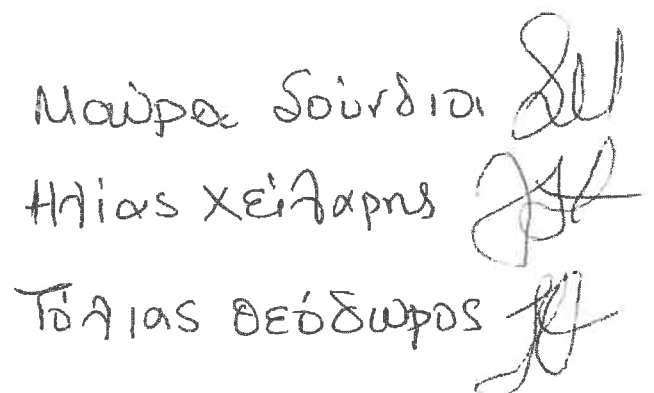 Μαύρα Σούνδιοι
Ηλίας Χείλαρης
Τόλιας Θεόδωρος